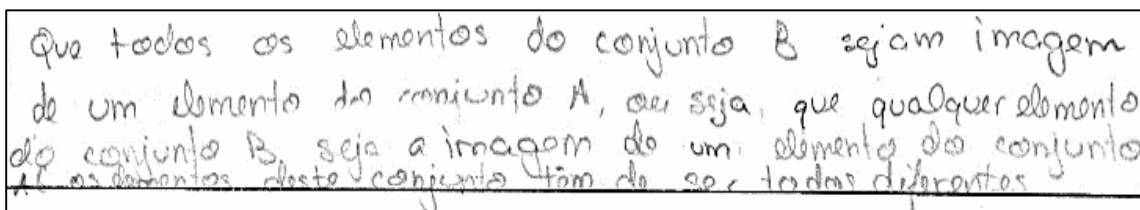 Que todos os elementos do conjunto B sejam imagem
de um elemento do conjunto A, ou seja, que qualquer elemento
do conjunto B, seja a imagem de um elemento do conjunto
os elementos deste conjunto têm de ser todos diferentes